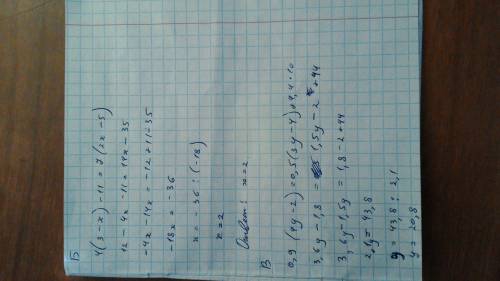 Б
4(3-x)-11=7(2x-5)
12-4x-11=14x-35
-4x-14x=-12+11-35
-18x=-36
x=-36:(-18)
x=2
Ответ: x=2
В
0,9(4y-2)=0,5(3y-4)+4,4·10
3,6y-1,8=1,5y-2+44
3,6y-1,5y=1,8-2+44
2,1y=43,8
y=43,8:2,1
y=20,8